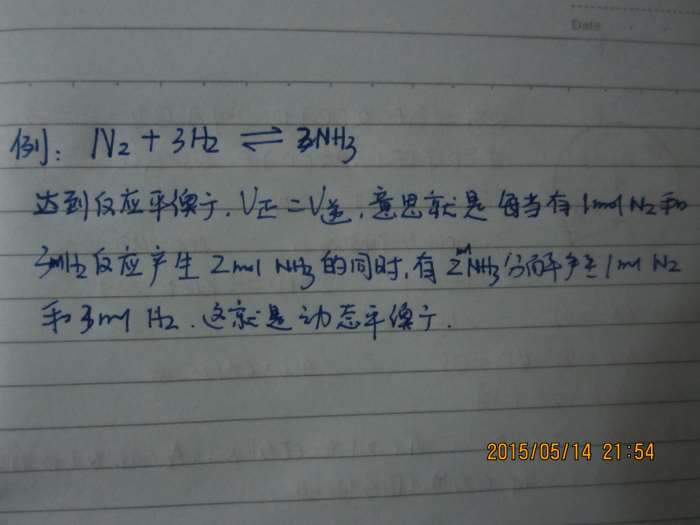 Date
例: N₂ + 3H₂ ⇌ 3NH₃
达到反应平衡于, V正 = V逆, 意思就是 每当有 1mol N₂ 和
3mH₂ 反应产生 2mol NH₃ 的同时, 有 2mNH₃ 分解产生 1mol N₂
和 3mol H₂. 这就是动态平衡.
2015/05/14 21:54